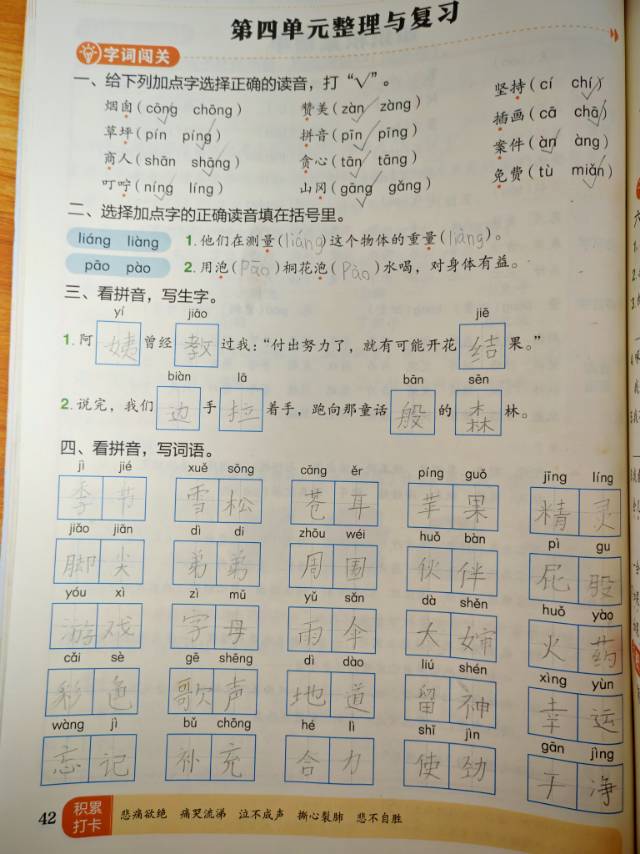 第四单元整理与复习
字词闯关
一、给下列加点字选择正确的读音，打“√”。
烟囱(cōng chōng) 赞美(zàn zàng) 坚持(cí chí)
草坪(pín píng) 拼音(pīn pīng) 插画(cā chā)
商人(shān shāng) 贪心(tān tāng) 案件(àn àng)
叮咛(níng líng) 山冈(gāng gǎng) 免费(tù miǎn)
二、选择加点字的正确读音填在括号里。
liáng liàng 1.他们在测量(liáng)这个物体的重量(liàng)。
pāo pào 2.用泡(pāo)桐花泡(pào)水喝，对身体有益。
三、看拼音，写生字。
yí jiāo jiē
1.阿姨曾经教过我：“付出努力了，就有可能开花结果。”
biàn lā bān sēn
2.说完，我们边手拉着手，跑向那童话般的森林。
四、看拼音，写词语。
jì jié xuě sōng cāng ěr píng guǒ jīng líng
季节 雪松 苍耳 苹果 精灵
jiǎo jiān dì di zhōu wéi huǒ bàn pì gu
脚尖 弟弟 周围 伙伴 屁股
yóu xì zì mǔ yǔ sǎn dà shěn huǒ yào
游戏 字母 雨伞 大婶 火药
cǎi sè gē shēng dì dào liú shén xìng yùn
彩色 歌声 地道 留神 幸运
wàng jì bǔ chōng hé lì shǐ jìn gān jìng
忘记 补充 合力 使劲 干净
42 积累打卡 悲痛欲绝 痛哭流涕 泣不成声 撕心裂肺 悲不自胜